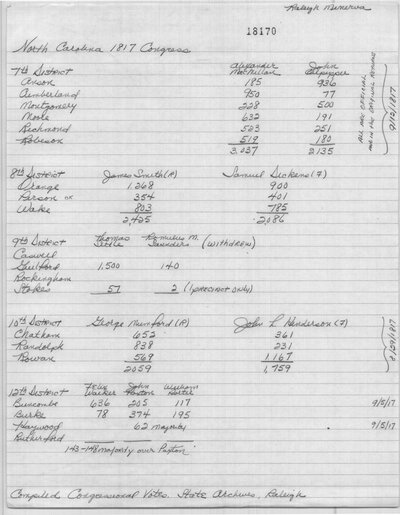 Raleigh Minerva
18170
North Carolina 1817 Congress
7th District Alexander McMillan John Culpepper
Anson 185 936
Cumberland 950 77
Montgomery 228 500
Moore 632 191
Richmond 523 251
Robeson 519 180
3,037 2135
9/12/1817
8th District James Smith (R) Samuel Dickens (F)
Orange 1,268 900
Person 354 401
Wake 803 785
2,425 2,086
9th District Thomas Settle Romulus M. Saunders (withdrew)
Caswell
Guilford 1,500 140
Rockingham
Stokes 57 2 (1 precinct only)
10th District George Mumford (R) John L. Henderson (F)
Chatham 652 361
Randolph 838 231
Rowan 569 1,167
2059 1,759
8/29/1817
12th District Felix Walker John Paxton William Porter
Buncombe 636 205 117 9/5/17
Burke 78 374 195
Haywood 62 majority 9/5/17
Rutherford
143-148 majority over Paxton
Compiled Congressional Votes. State Archives, Raleigh